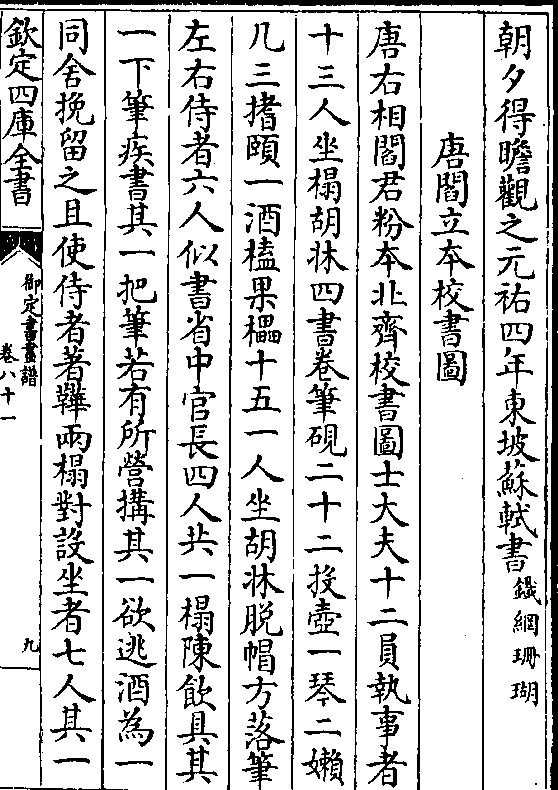 朝夕得瞻觀之元祐四年東坡蘇軾書鐵網珊瑚
唐閻立本校書圖
唐右相閻君粉本北齊校書圖士大夫十二員執事者
十三人坐榻胡牀四書卷筆硯二十二投壺一琴二嬾
几三搘頤一酒榼果櫑十五一人坐胡牀脱帽方落筆
左右侍者六人似書省中官長四人共一榻陳飲具其
一下筆疾書其一把筆若有所營搆其一欲逃酒為一
同舍挽留之且使侍者著鞾兩榻對設坐者七人其一
欽定四庫全書
御定書畫譜
卷八十一
九